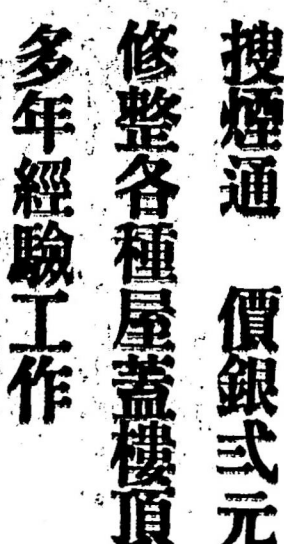 搜煙通　價銀弍元
修整各種屋蓋樓頂
多年經驗工作